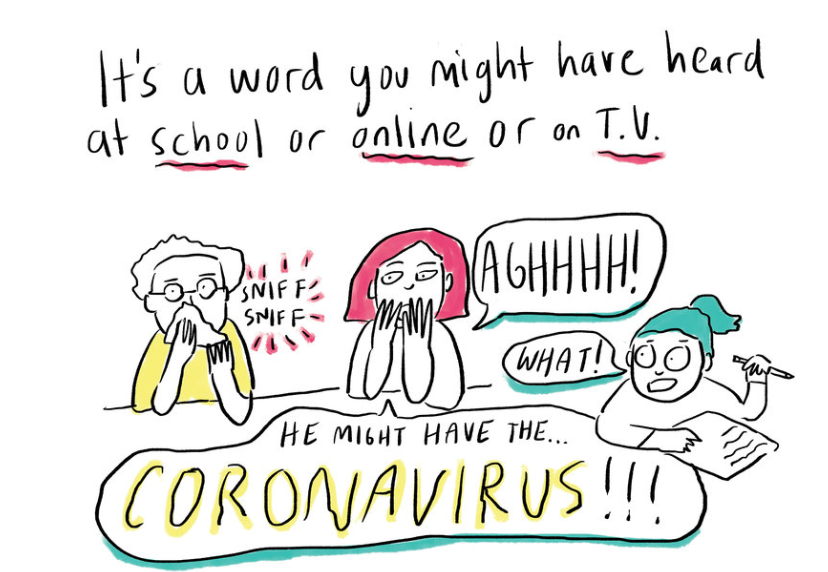 It's a word you might have heard
at school or online or on T.V.
SNIFF
SNIFF
AGHHHH!
WHAT!
HE MIGHT HAVE THE...
CORONAVIRUS!!!